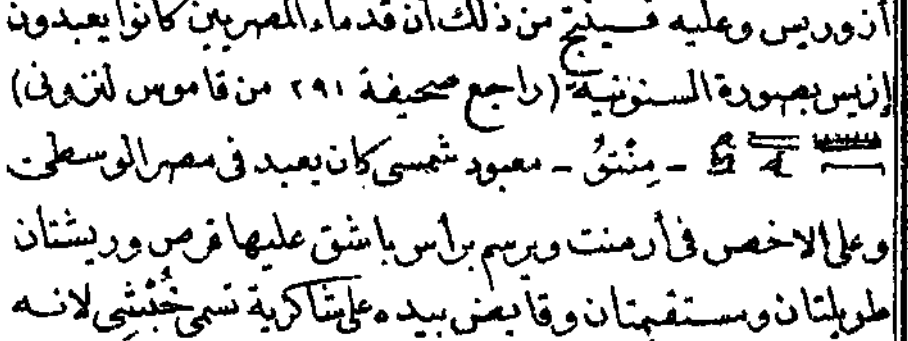 أزوريس وعليه فسينتج من ذلك أن قدماء المصريين كانوا يعبدون
إزيس بصورة السنونية (راجع صحيفة ٢٩١ من قاموس لنزونى)
- مِنْتُو - معبود شمسى كان يعبد فى مصر الوسطى
وعلى الاخص فى أرمنت ويرسم برأس باشق عليها قرص وريشتان
طويلتان ومستقيمتان وقابض بيده على شاكرية تسمى خُبْشِى لانه